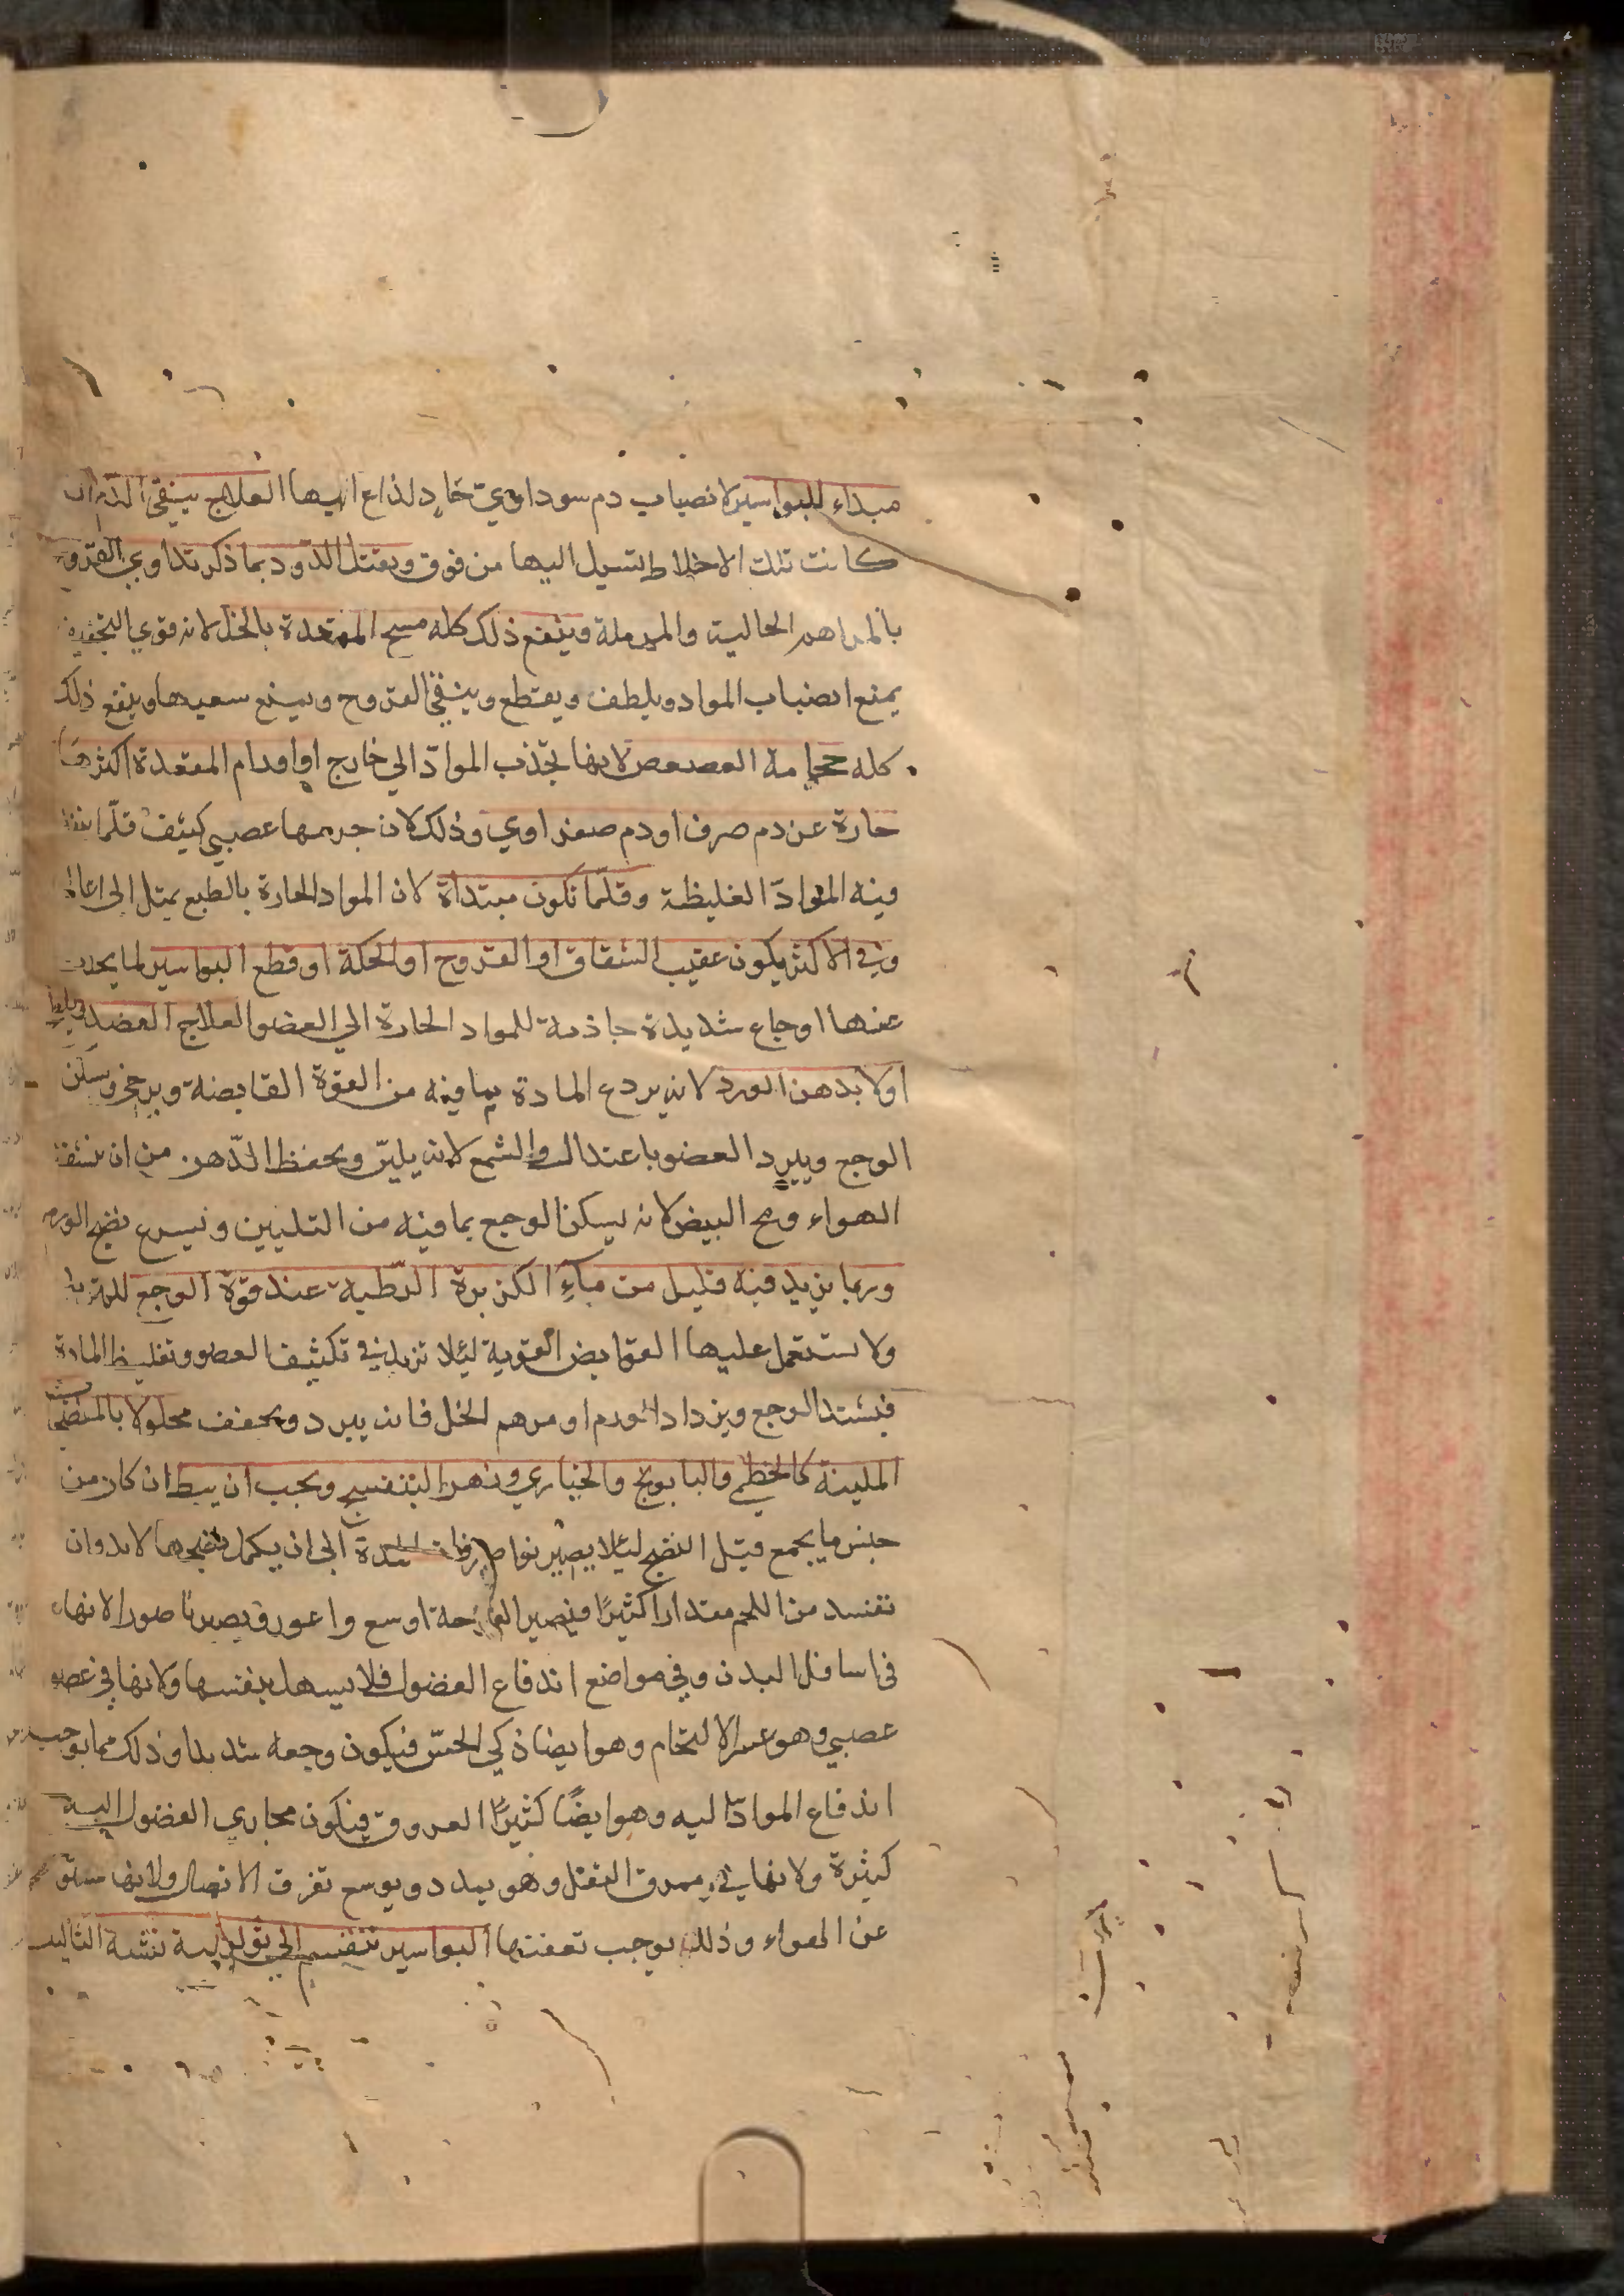 مبداء للبواسير لانصباب دم سوداوي حاد لذاع اليها العلاج ينقي البدن ان
كانت تلك الاخلاط تسيل اليها من فوق ويقتل الدود بما ذكر تداوي القروح
بالمراهم الحالية والمدملة وينفع ذلك كله مسح المقعدة بالخل لانه قوي التجفيف
يمنع انصباب المواد ويلطف ويقطع وينقي القروح ويمنع سعيها وينفع ذلك
كله حجامة العصعص لانها تجذب المواد الي خارج اواورام المقعدة اكثرها
حارة عن دم صرف او دم صفراوي وذلك لان جرمها عصبي كثيف قلما تنفذ
فيه المواد الغليظة وقلما تكون مبتداة لان المواد الحارة بالطبع يميل الى اعالي
وفي الاكثر يكون عقيب الشقاق او القروح او الحكة او قطع البواسير لما يحدث
عنها اوجاع شديدة جاذبة للمواد الحارة الي العضو العلاج الفصد
اولا بدهن الورد لانه يردع المادة بما فيه من القوة القابضة ويرخي ويسكن
الوجع ويبرد العضو باعتدال والشمع لانه يلين ويحفظ الدهن من ان ينشفه
الهواء ومح البيض لانه يسكن الوجع بما فيه من التليين ويسرع نضج الورم
وربما يزيد فيه قليل من ماء الكزبرة الرطبة عند قوة الوجع للتبريد
ولا يستعمل عليها القوابض القوية ليلا تزيد في تكثيف العضو وتغليظ المادة
فيشتد الوجع ويزداد الورم او مرهم الخل فانه يبرد ويجفف محلولا بالمنضجة
الملينة كالخطمي والبابونج والخبازي وزهر البنفسج ويجب ان يبط ان كان من
جنس ما يجمع قبل النضج ليلا يصير نواصير فان المدة الى ان يكمل نضجها لابد وان
تفسد من اللحم مقدارا كثيرا فيصير القرحة اوسع واغور فيصير ناصور الانها
في اسافل البدن وفي مواضع اندفاع الفضول فلا يسهل بنفسها ولانها في عضو
عصبي وهو عسر الالتحام وهو ايضا ذكي الحس فيكون وجعه شديدا وذلك مما يوجب
اندفاع المواد اليه وهو ايضا كثير العروق فيكون مجاري الفضول اليه
كثيرة ولانها في ممر الثقل وهو يمدد ويوسع تفرق الاتصال ولانها مستورة
عن الهواء وذلك يوجب تعفنها البواسير تنقسم الي ثولولية تشبه الثاليل